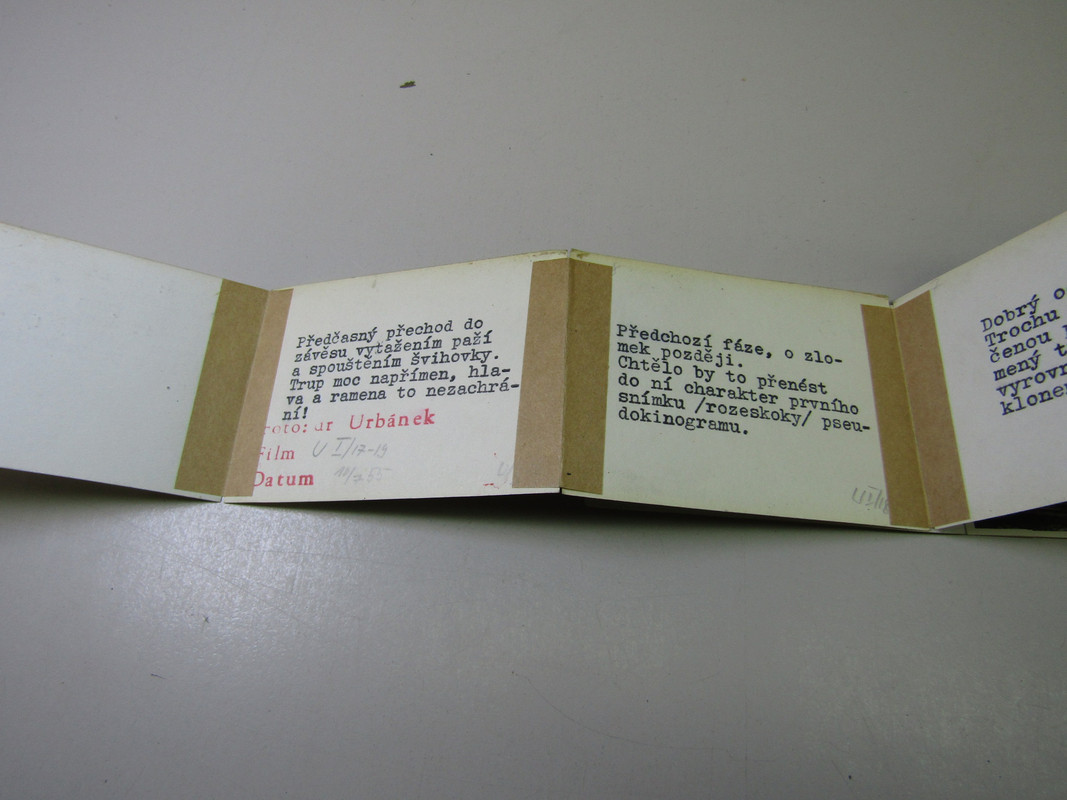 Předčasný přechod do
závěsu vytažením paží
a spouštěním švihovky.
Trup moc napřímen, hla-
va a ramena to nezachrá-
ní!
Foto: dr Urbánek
Film U I/17-19
Datum
Předchozí fáze, o zlo-
mek později.
Chtělo by to přenést
do ní charakter prvního
snímku /rozeskoky/ pseu-
dokinogramu.
Dobrý
Trochu
čenou
mený
vyrov
klone